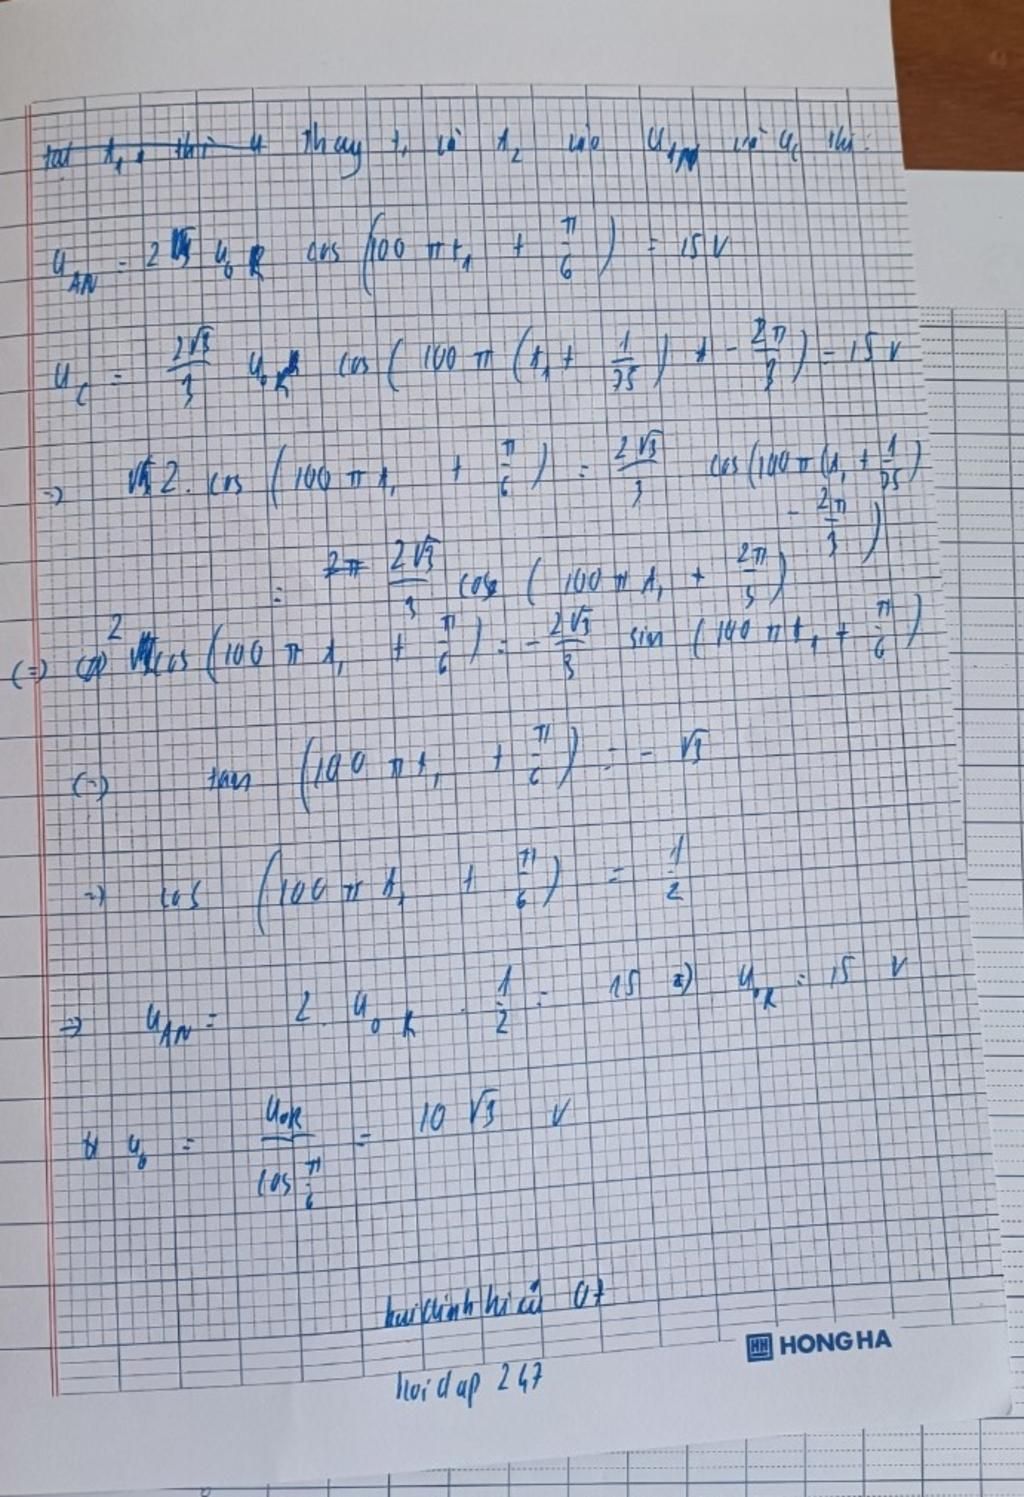 Thay t₁ và t₂ vào u_AN và u_C thì:
u_AN = 2 U₀R cos (100πt₁ + π/6) = 15 V
u_C = 2√3/3 U₀R cos (100π (t₁ + 1/75) - 2π/3) = 15 V
=> 2. cos (100πt₁ + π/6) = 2√3/3 cos (100π (t₁ + 1/75) - 2π/3)
= 2√3/3 cos (100πt₁ + 2π/3)
(=) 2 cos (100πt₁ + π/6) = - 2√3/3 sin (100πt₁ + π/6)
(=) tan (100πt₁ + π/6) = - √3
=> cos (100πt₁ + π/6) = 1/2
=> u_AN = 2. U₀R . 1/2 = 15 => U₀R = 15 V
U₀ = U₀R / cos π/6 = 10√3 V
buidinhhieu 07
hoidap 247
HH HONG HA